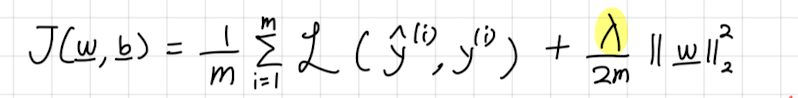 J(w, b) = 1/m ∑_{i=1}^{m} ℒ(ŷ^{(i)}, y^{(i)}) + λ/2m ||w||_2^2